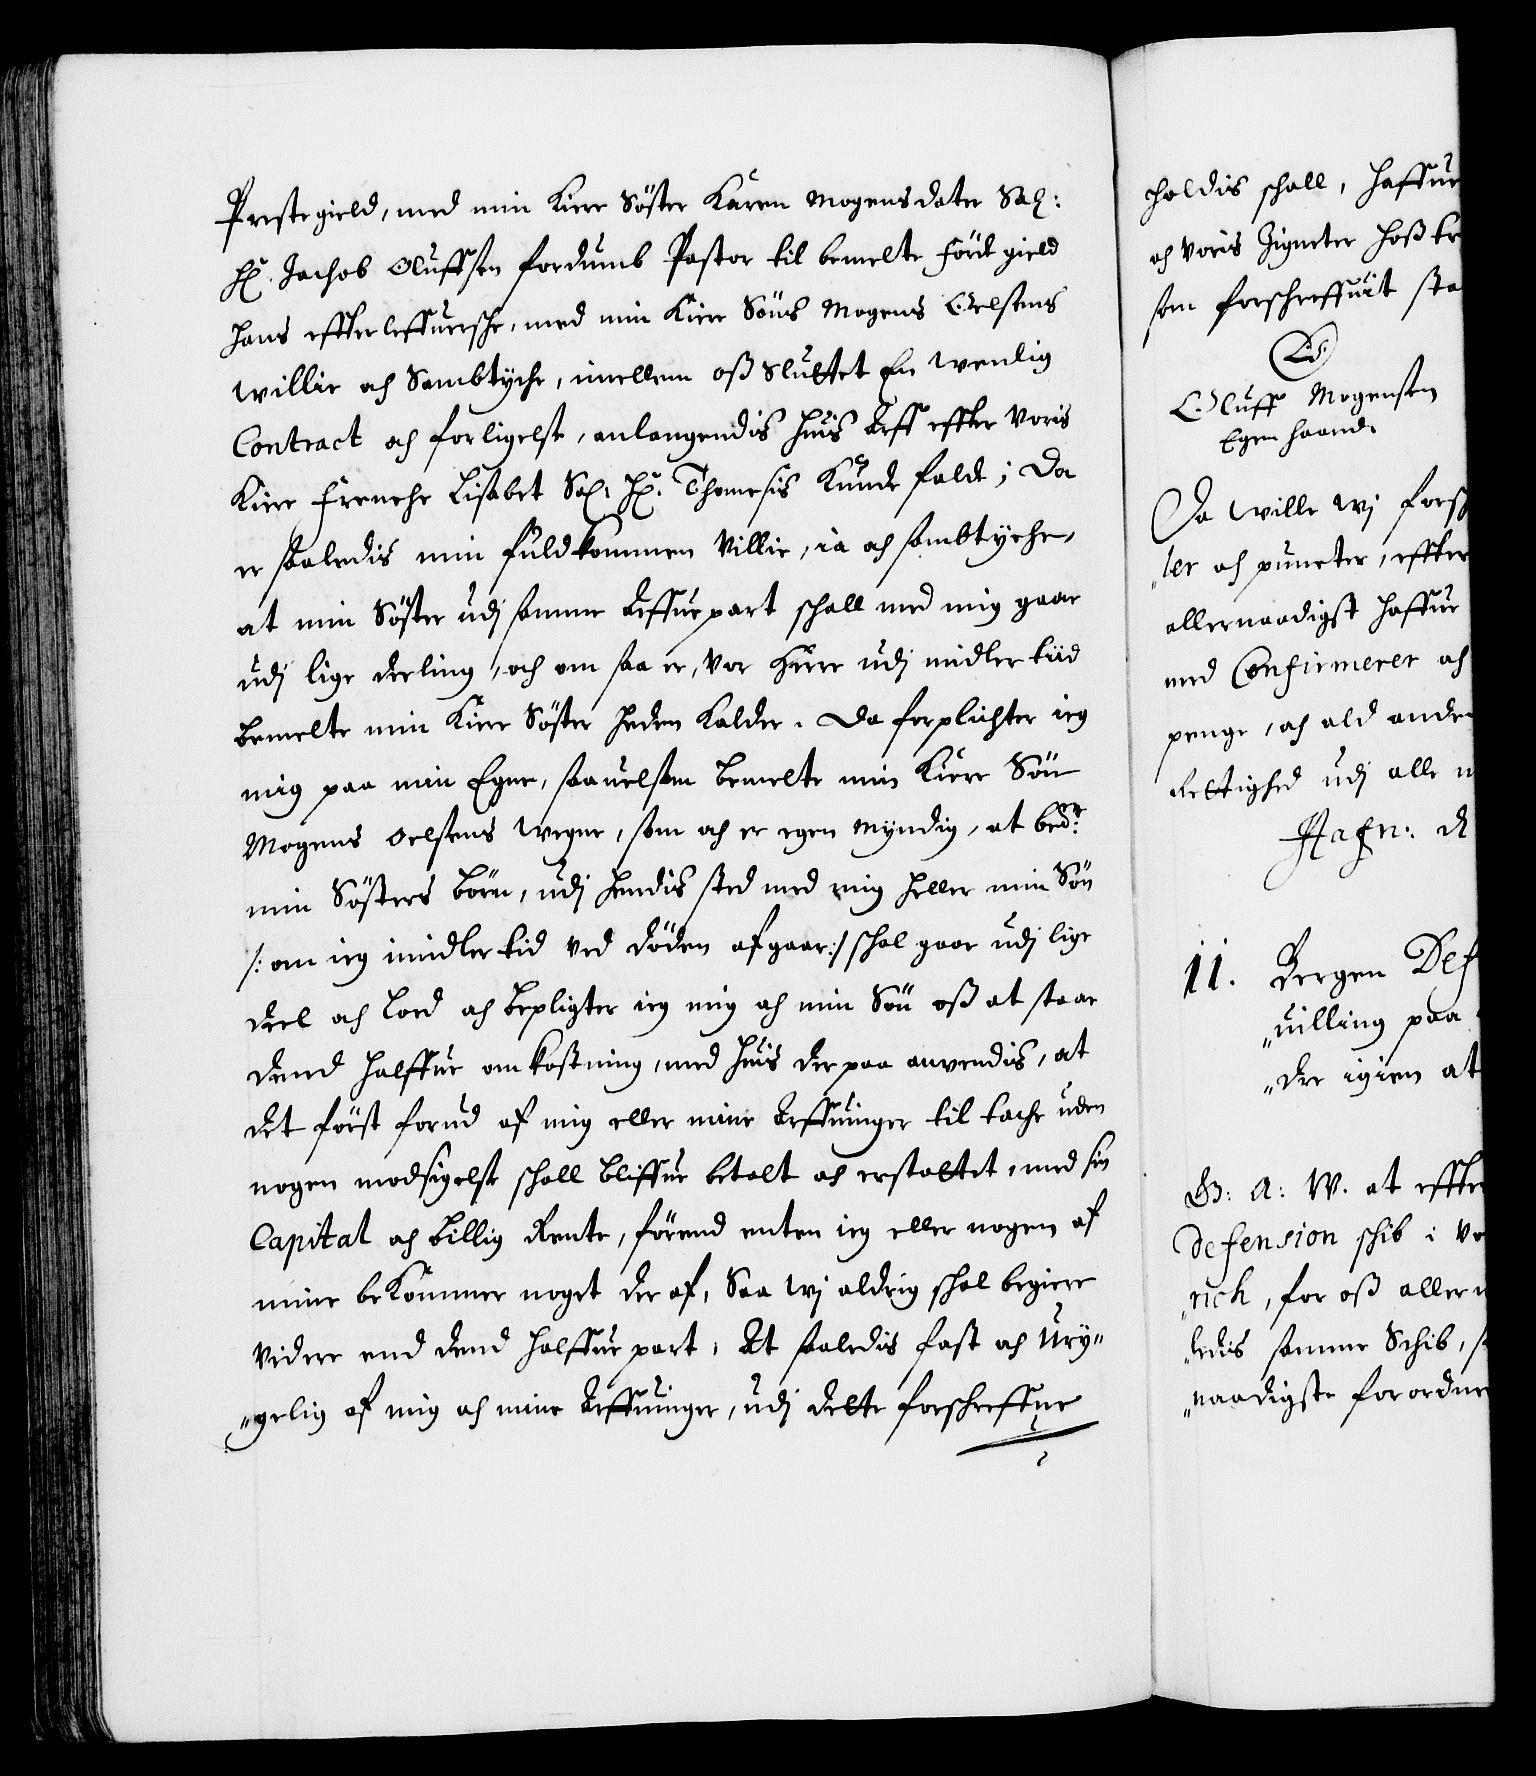 Prestegield, med min Kiere Söster Karen Mogensdater Sal:
Hr. Jachob Oluffsen fordumb Pastor til bemelte Förde gield
hans effterleffuersche, med min Kiere Söns Mogens Oelsens
willie och Sambtyche, imellem oß Sluttet En wenlig
Contract och forligelse, anlangendis huis Arff effter voris
Kiere Frenche Lisabet Sal: Hr. Thomesis Kunde falde; Da
er saaledis min fuldkommen Villie, ia och sambtyche,
at min Söster udj samme Arffuepart schall med mig gaae
udj lige deeling, och om saa er, vor Herre udj midler tiid
bemelte min Kiere Söster heden Kalder. Da forplichter ieg
mig paa min Egne, saauelsom bemelte min Kiere Sön
Mogens Oelsens wegne, som och er egen Myndig, at bedte
min Sösters börn, udj hendis sted med mig heller min Sön
/: om ieg imidlertid ved döden afgaar:/ schal gaae udj lige
deel och lod och bepligter ieg mig och min Sön oß at staae
dend halffue omkostning, med huis der paa anvendis, at
det först forud af mig eller mine Arffuinger til tache uden
nogen modsigelse schall bliffue betalt och erstattet, med sin
Capital och billig Rente, förend enten ieg eller nogen af
mine beKommer noget der af, Saa wj aldrig schal begiere
videre end dend halffue part, At saaledis fast och Ury=
=gelig af mig och mine Arffuinger, udj dette forschreffne
holdis schall, haffue
och voris Zigneter hoß tr
som forschreffuit sta
LS
Oluff Mogensen
Egen haand.
Da wille wj forsch
=ler och puncter, effter
allernaadigst haffue
med Confirmerer och
penge, och ald anden
Rettighed udj alle m
Hafn: d
11. Bergen Def
=uilling paa
=der igien at
G: A: W. at effter
Defension schib i vo
=rich, for oß aller n
=ledis samme Schib, s
=naadigste forordne